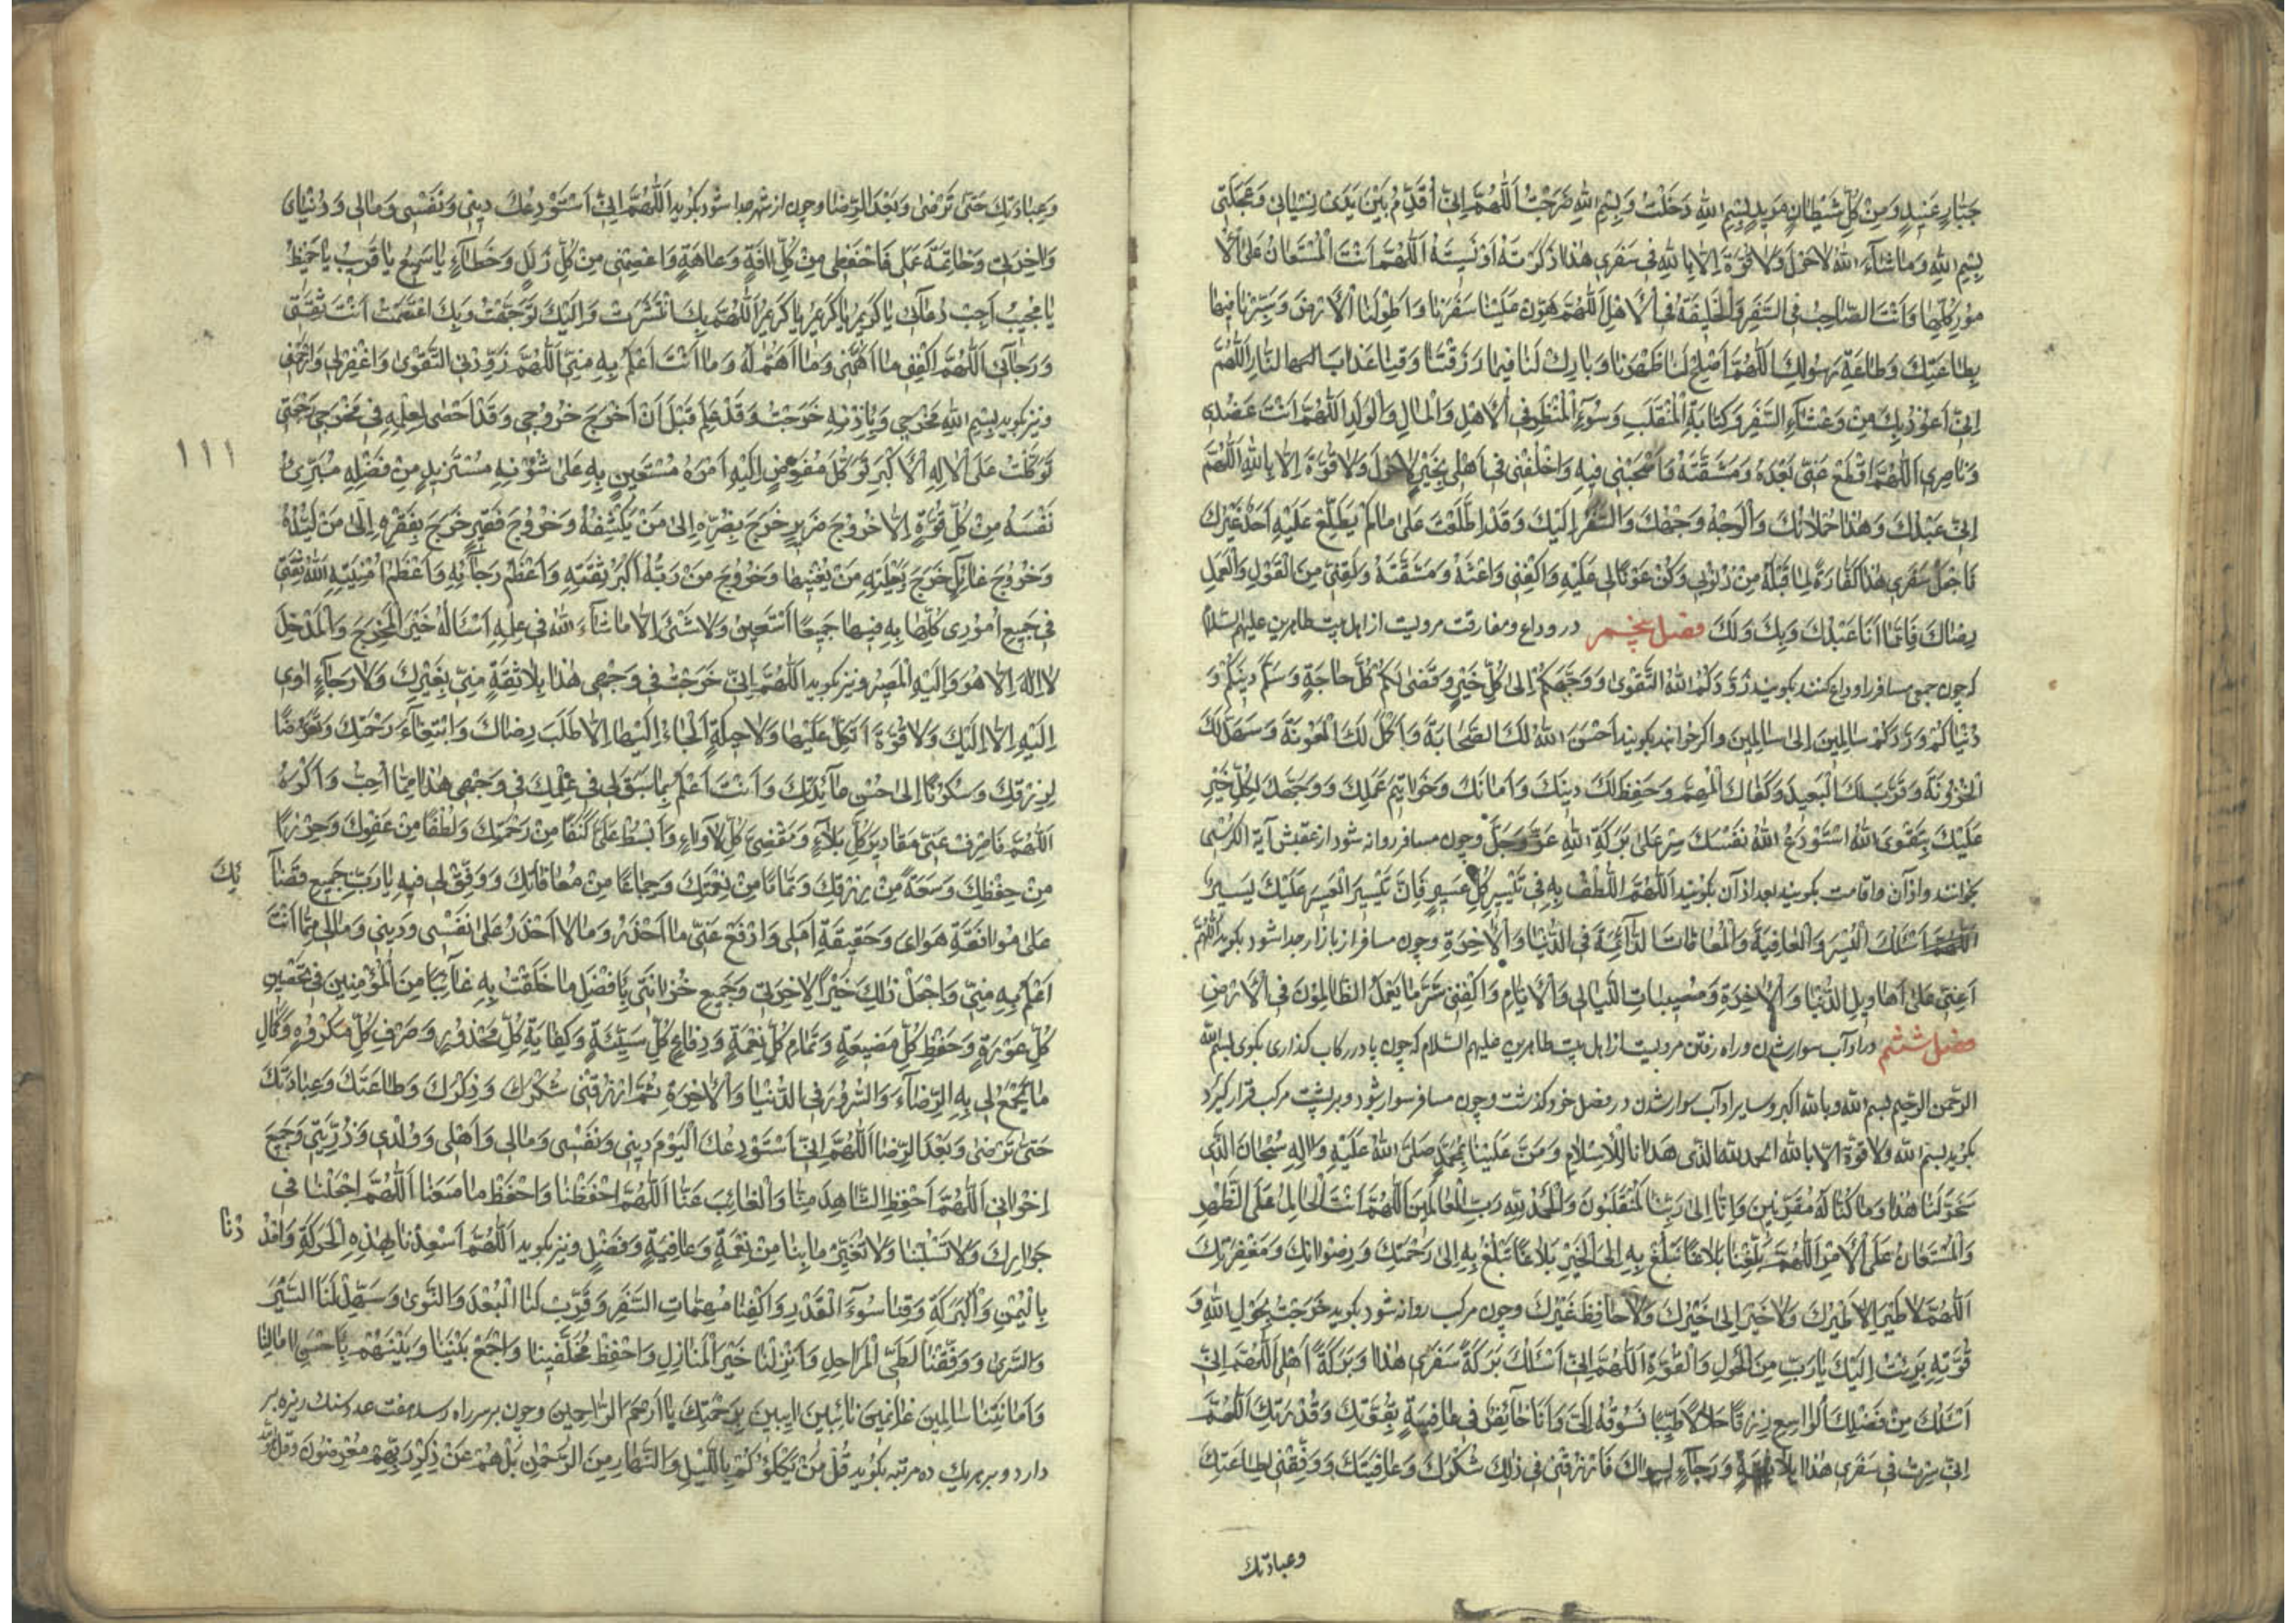 جَبّارٍ عَنيدٍ وَمِنْ كُلِّ شَيْطانٍ مَريدٍ بِسْمِ اللهِ دَخَلْتُ وَبِسْمِ اللهِ خَرَجْتُ اَللّهُمَّ اِنّي اُقَدِّمُ بَيْنَ يَدَىْ نِسْياني وَعَجَلَتي
بِسْمِ اللهِ وَما شآءَ اللهُ لاحَوْلَ وَلا قُوَّةَ اِلاّ بِاللهِ في سَفَري هذا ذَكَرْتَهُ اَوْ نَسيتُهُ اَللّهُمَّ اَنْتَ الْمُسْتَعانُ عَلَى الْاُ
مُورِ كُلِّها وَاَنْتَ الصّاحِبُ فِى السَّفَرِ وَالْخَليفَةُ فِى الْاَهْلِ اَللّهُمَّ هَوِّنْ عَلَيْنا سَفَرَنا وَاَطْوِلَنَا الْاَرْضَ وَسَيِّرْنا فيها
بِطاعَتِكَ وَطاعَةِ رَسُولِكَ اَللّهُمَّ اَصْلِحْ لَنا ظَهْرَنا وَبارِكْ لَنا فيما رَزَقْتَنا وَقِنا عَذابَ النّارِ اَللّهُمَّ
اِنّي اَعُوذُ بِكَ مِنْ وَعْثآءِ السَّفَرِ وَكَابَةِ الْمُنْقَلَبِ وَسُوءِ الْمَنْظَرِ فِى الْاَهْلِ وَالْمالِ وَالْوَلَدِ اَللّهُمَّ اَنْتَ عَضُدي
وَناصِري اَللّهُمَّ اقْطَعْ عَنّي بُعْدَهُ وَمَشَقَّتَهُ وَاَصْحِبْني فيهِ وَاخْلُفْني في اَهْلي بِخَيْرٍ لاحَوْلَ وَلا قُوَّةَ اِلاّ بِاللهِ اَللّهُمَّ
اِنّي عَبْدُكَ وَهذا حُمْلانُكَ وَالْوَجْهُ وَجْهُكَ وَالسَّفَرُ اِلَيْكَ وَقَدْ اِطَّلَعْتَ عَلى ما لَمْ يَطَّلِعْ عَلَيْهِ اَحَدٌ غَيْرُكَ
فَاجْعَلْ سَفَري هذا كَفّارَةً لِما قَبْلَهُ مِنْ ذُنُوبي وَكُنْ عَوْنًا لي عَلَيْهِ وَاكْفِني وَاعْثَهُ وَمَشَقَّتَهُ وَلَقِّنّي مِنَ الْقَوْلِ وَالْعَمَلِ
رِضاكَ فَاِنَّما اَنَا عَبْدُكَ وَبِكَ وَلَكَ فصل پنجم در وداع ومفارقت مرويست از اهل بيت طاهرين عليهم السلام
كه چون جمعى مسافر را وداع كنند بكويند زَوَّدَكُمُ اللهُ التَّقْوى وَوَجَّهَكُمْ اِلى كُلِّ خَيْرٍ وَقَضى لَكُمْ كُلَّ حاجَةٍ وَسَلَّمَ دينَكُمْ وَ
دُنْياكُمْ وَرَدَّكُمْ سالِمينَ اِلى سالِمينَ واكر خواهند بكويند اَحْسَنَ اللهُ لَكَ الصَّحابَةَ وَاَكْمَلَ لَكَ الْمَعُونَةَ وَسَهَّلَ لَكَ
الْحُزُونَةَ وَقَرَّبَ لَكَ الْبَعيدَ وَكَفاكَ الْمُهِمَّ وَحَفِظَ لَكَ دينَكَ وَاَمانَتَكَ وَخَواتيمَ عَمَلِكَ وَوَجَّهَكَ لِكُلِّ خَيْرٍ
عَلَيْكَ بِتَقْوَى اللهِ اسْتَوْدِعُ اللهَ نَفْسَكَ سِرْ عَلى بَرَكَةِ اللهِ عَزَّ وَجَلَّ وچون مسافر روانه شود از عقبش آية الكرسى
بخوانند واذان واقامت بكويند بعد از آن بكويند اَللّهُمَّ الْطُفْ بِهِ في تَيْسيرِ كُلِّ عَسيرٍ فَاِنَّ تَيْسيرَ الْعَسيرِ عَلَيْكَ يَسيرٌ
اَسْئَلُكَ الْيُسْرَ وَالْعافِيَةَ وَالْمُعافاتَ الدّآئِمَةَ فِى الدُّنْيا وَالْاخِرَةِ وچون مسافر از بازار جدا شود بكويد اَللّهُمَّ
اَعِنّي عَلى اَهاويلِ الدُّنْيا وَالْاخِرَةِ وَمُصيباتِ اللَّيالي وَالْاَيّامِ وَاكْفِني شَرَّ ما يَعْمَلُ الظّالِمُونَ فِى الْاَرْضِ
فصل ششم در آداب سوار شدن وراه رفتن مرويست از اهل بيت طاهرين عليهم السلام كه چون پا در ركاب كذارى بكوى بسم الله
الرحمن الرحيم بسم الله وبالله اكبر وساير آداب سوار شدن در فصل خود كذشت وچون مسافر سوار شود وبر پشت مركب قرار كيرد
بكويد بسم الله ولا قوة الا بالله الحمد لله الذى هَدانا لِلْاِسْلامِ وَمَنَّ عَلَيْنا بِمُحَمَّدٍ صَلَّى اللهُ عَلَيْهِ وَالِهِ سُبْحانَ الَّذي
سَخَّرَلَنا هذا وَما كُنّا لَهُ مُقْرِنينَ وَاِنّا اِلى رَبِّنا لَمُنْقَلِبُونَ وَالْحَمْدُ لِلّهِ رَبِّ الْعالَمينَ اَللّهُمَّ اَنْتَ الْحامِلُ عَلَى الظَّهْرِ
وَالْمُسْتَعانُ عَلَى الْاَمْرِ اَللّهُمَّ بَلِّغْنا بَلاغًا تَبْلُغُ بِهِ اِلَى الْخَيْرِ بَلاغًا تَبْلُغُ بِهِ اِلى رَحْمَتِكَ وَرِضْوانِكَ وَمَغْفِرَتِكَ
اَللّهُمَّ لاطَيْرَ اِلاّ طَيْرُكَ وَلا خَيْرَ اِلاّ خَيْرُكَ وَلا حافِظَ غَيْرُكَ وچون مركب روانه شود بكويد خَرَجْتُ بِحَوْلِ اللهِ وَ
قُوَّتِهِ بَرِئْتُ اِلَيْكَ يا رَبِّ مِنَ الْحَوْلِ وَالْقُوَّةِ اَللّهُمَّ اِنّي اَسْئَلُكَ بَرَكَةَ سَفَري هذا وَبَرَكَةَ اَهْلي اَللّهُمَّ اِنّي
اَسْئَلُكَ مِنْ فَضْلِكَ الْواسِعِ رِزْقًا حَلالاً طَيِّبًا تَسُوقُهُ اِلَيَّ وَاَنَا خآئِضٌ في عافِيَةٍ بِقُوَّتِكَ وَقُدْرَتِكَ اَللّهُمَّ
اِنّي سِرْتُ في سَفَري هذا بِلا ثِقَةٍ وَرَجآءٍ لِسِواكَ فَارْزُقْني في ذلِكَ شُكْرَكَ وَعافِيَتَكَ وَوَفِّقْني لِطاعَتِكَ
وعبادتك
وَعِبادَتِكَ حَتّى تَرْضى وَبَعْدَ الرِّضا وچون از شهر جدا شود بكويد اَللّهُمَّ اِنّي اَسْتَوْدِعُكَ ديني وَنَفْسي وَمالي وَدُنْيايَ
وَاخِرَتي وَخاتِمَةَ عَمَلي فَاحْفَظْني مِنْ كُلِّ افَةٍ وَعاهَةٍ وَاعْصِمْني مِنْ كُلِّ زَلَلٍ وَخَطآءٍ يا سَميعُ يا قَريبُ يا حَفيظُ
يا مُجيبُ اَجِبْ دُعآئي يا كَريمُ يا كَريمُ يا كَريمُ اَللّهُمَّ بِكَ انْتَشَرْتُ وَاِلَيْكَ تَوَجَّهْتُ وَبِكَ اعْتَصَمْتُ اَنْتَ ثِقَتي
وَرَجآئي اَللّهُمَّ اكْفِني ما اَهَمَّني وَما اَهْتَمُّ لَهُ وَما اَنْتَ اَعْلَمُ بِهِ مِنّي اَللّهُمَّ زَوِّدْنِى التَّقْوى وَاغْفِرْلي وَارْحَمْني
ونيز بكويد بِسْمِ اللهِ مَخْرَجي وَبِاِذْنِهِ خَرَجْتُ وَقَدْ عَلِمَ قَبْلَ اَنْ اَخْرُجَ خُرُوجي وَقَدْ اَحْصى بِعِلْمِهِ في مَخْرَجي رَجْعَتي
١١١
تَوَكَّلْتُ عَلَى الْاِلهِ الْاَكْبَرِ تَوَكُّلَ مُفَوِّضٍ اِلَيْهِ اَمْرَهُ مُسْتَعينٍ بِهِ عَلى شُؤُنِهِ مُسْتَزيدٍ مِنْ فَضْلِهِ مُبْرِئٍ
نَفْسَهُ مِنْ كُلِّ قُوَّةٍ اِلاّ خُرُوجَ ضَريرٍ خَرَجَ بِضُرِّهِ اِلى مَنْ يَكْشِفُهُ وَخُرُوجَ فَقيرٍ خَرَجَ بِفَقْرِهِ اِلى مَنْ يَسُدُّهُ
وَخُرُوجَ عآئِلٍ خَرَجَ بِعَيْلَتِهِ مَنْ يُغْنيها وَخُرُوجَ مَنْ رَبُّهُ اَكْبَرُ ثِقَتِهِ وَاَعْظَمُ رَجآئِهِ وَاَعْظَمُ اُمْنِيَّتِهِ اَللهُ ثِقَتي
في جَميعِ اُمُوري كُلِّها بِهِ فيها جَميعًا اَسْتَعينُ وَلا شَيْءَ اِلاّ ما شآءَ اللهُ في عِلْمِهِ اَسْئَلُهُ خَيْرَ الْمَخْرَجِ وَالْمَدْخَلِ
لا اِلهَ اِلاّ هُوَ وَاِلَيْهِ الْمَصيرُ ونيز بكويد اَللّهُمَّ اِنّي خَرَجْتُ في وَجْهي هذا بِلا ثِقَةٍ مِنّي بِغَيْرِكَ وَلا رَجآءٍ اوي
اِلَيْهِ اِلاّ اِلَيْكَ وَلا قُوَّةَ اَتَّكِلُ عَلَيْها وَلا حيلَةٍ اَلْجَاُ اِلَيْها اِلاّ طَلَبَ رِضاكَ وَابْتِغآءَ رَحْمَتِكَ وَتَعَرُّضًا
لِرِزْقِكَ وَسُكُونًا اِلى حُسْنِ عآئِدَتِكَ وَاَنْتَ اَعْلَمُ بِما سَبَقَ لي في عِلْمِكَ في وَجْهي هذا مِمّا اُحِبُّ وَاَكْرَهُ
اَللّهُمَّ فَاصْرِفْ عَنّي مَقاديرَ كُلِّ بَلآءٍ وَمَقْضِيَّ كُلِّ لَاْوآءٍ وَابْسُطْ عَلَيَّ كَنَفًا مِنْ رَحْمَتِكَ وَلُطْفًا مِنْ عَفْوِكَ وَحِرْزًا
مِنْ حِفْظِكَ وَسَعَةً مِنْ رِزْقِكَ وَتَمامًا مِنْ نِعْمَتِكَ وَجِماعًا مِنْ مُعافاتِكَ وَوَفِّقْ لي فيهِ يا رَبِّ جَميعَ قَضآ ئِكَ
عَلى مُوافَقَةِ هَوايَ وَحَقيقَةِ اَمَلي وَادْفَعْ عَنّي ما اَحْذَرُ وَما لا اَحْذَرُ عَلى نَفْسي وَديني وَمالي مِمّا اَنْتَ
اَعْلَمُ بِهِ مِنّي وَاجْعَلْ ذلِكَ خَيْرًا لِاخِرَتي وَجَميعِ حُزانَتي بِاَفْضَلِ ما خَلَفْتَ بِهِ غآئِبًا مِنَ الْمُؤْمِنينَ في تَحْصينِ
كُلِّ عَوْرَةٍ وَحِفْظِ كُلِّ مَضيعَةٍ وَتَمامِ كُلِّ نِعْمَةٍ وَدِفاعِ كُلِّ سَيِّئَةٍ وَكِفايَةِ كُلِّ مَحْذُورٍ وَصَرْفِ كُلِّ مَكْرُوهٍ وَكَمالِ
ما يَجْمَعُ لي بِهِ الرِّضآءَ وَالسُّرُورَ فِى الدُّنْيا وَالْاخِرَةِ ثُمَّ ارْزُقْني شُكْرَكَ وَذِكْرَكَ وَطاعَتَكَ وَعِبادَتَكَ
حَتّى تَرْضى وَبَعْدَ الرِّضا اَللّهُمَّ اِنّي اَسْتَوْدِعُكَ الْيَوْمَ ديني وَنَفْسي وَمالي وَاَهْلي وَوُلْدي وَذُرِّيَّتي وَجَميعَ
اِخْواني اَللّهُمَّ احْفَظِ الشّاهِدَ مِنّا وَالْغائِبَ عَنّا اَللّهُمَّ احْفَظْنا وَاحْفَظْ ما مَعَنا اَللّهُمَّ اجْعَلْنا في
جِوارِكَ وَلا تَسْلُبْنا وَلا تُغَيِّرْ ما بِنا مِنْ نِعْمَةٍ وَعافِيَةٍ وَفَضْلٍ ونيز بكويد اَللّهُمَّ اَسْعِدْنا بِهذِهِ الْحَرَكَةِ وَامْدُ دْنا
بِالْيُمْنِ وَالْبَرَكَةِ وَقِنا سُوءَ الْقَدَرِ وَاكْفِنا مُهِمّاتِ السَّفَرِ وَقَرِّبْ لَنَا الْبُعْدَ وَالنَّوى وَسَهِّلْ لَنَا السَّيْرَ
وَالسُّرى وَوَفِّقْنا لِطَيِّ الْمَراحِلِ وَاَنْزِلْنا خَيْرَ الْمَنازِلِ وَاحْفَظْ مُخَلَّفينا وَاجْمَعْ بَيْنَنا وَبَيْنَهُمْ بِاَحْسَنِ امالِنا
وَاَمانِيِّنا سالِمينَ غانِمينَ تائِبينَ ايِبينَ بِرَحْمَتِكَ يا اَرْحَمَ الرّاحِمينَ وچون بر سر راه رسد هفت عدد سنك ريزه بر
دارد وبر هر يك ده مرتبه بكويد قُلْ مَنْ يَكْلَؤُكُمْ بِاللَّيْلِ وَالنَّهارِ مِنَ الرَّحْمنِ بَلْ هُمْ عَنْ ذِكْرِ رَبِّهِمْ مُعْرِضُونَ